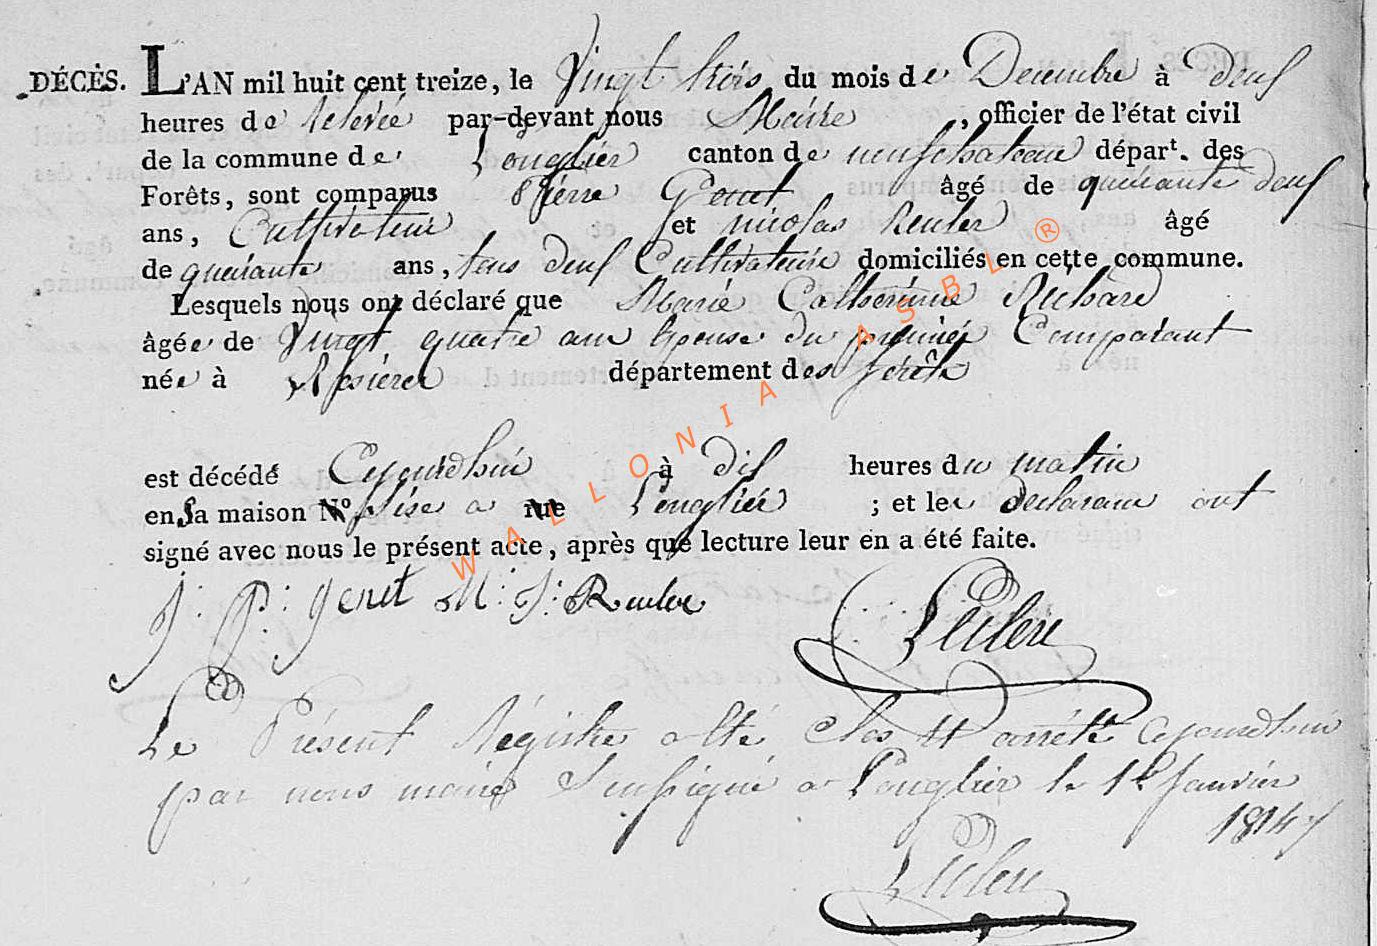 DÉCÈS. L'AN mil huit cent treize, le Vingt trois du mois de Decembre à deux
heures de relevée par-devant nous Maire, officier de l'état civil
de la commune de Longlier canton de neufchateau départ. des
Forêts, sont comparus Pierre Genet âgé de quarante deux
ans, Cultivateur et nicolas Reuler âgé
de quarante ans, tous deux Cultivateurs domiciliés en cette commune.
Lesquels nous ont déclaré que Marie Catherine Richard
âgée de Vingt quatre ans Epouse du premier Comparant
née à Rosieres département des forêts
est décédé Cejourdhui à dix heures du matin
en sa maison N° sise a rue Longlier ; et les declarans ont
signé avec nous le présent acte, après que lecture leur en a été faite.
J: P: Genet M: J: Reuler
Leclere
Le Présent Régistre a été Clos et arrété Cejourdhui
par nous maire Soussigné a Longlier le 1 Janvier
1814
Leclere
WALLONIA ASBL ®